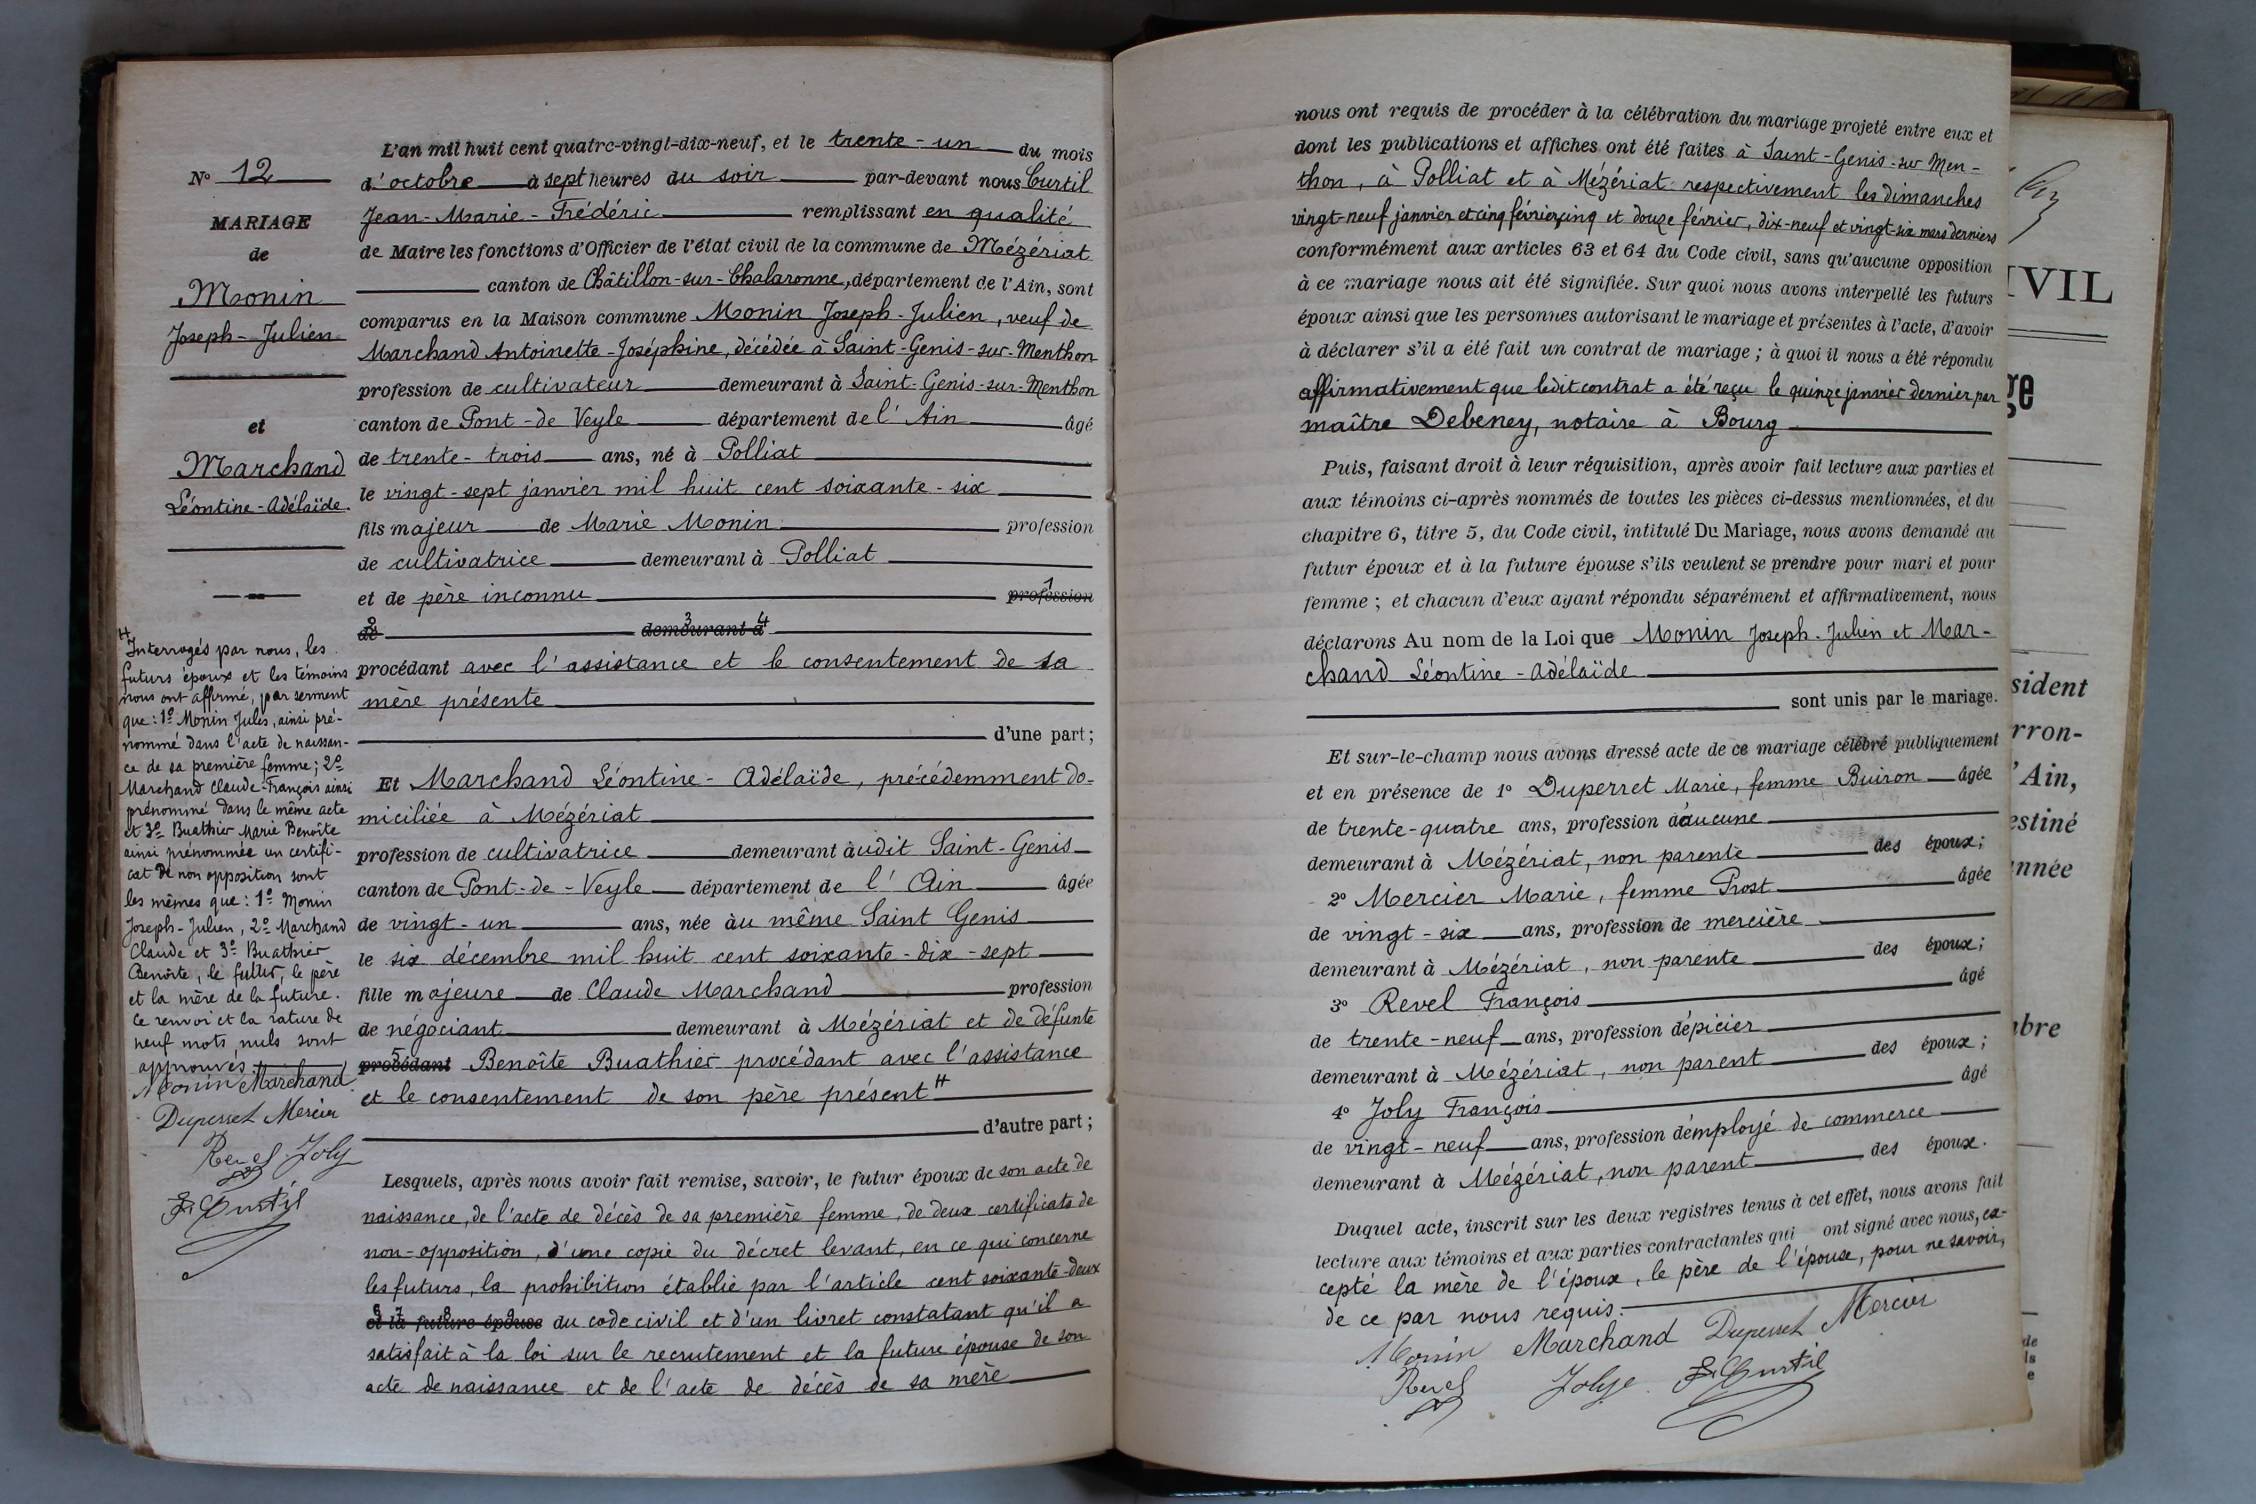 N° 12
MARIAGE
de
Monin
Joseph-Julien
et
Marchand
Léontine-Adélaïde.
H Interrogés par nous, les
futurs époux et les témoins
nous ont affirmé, par serment
que : 1° Monin Jules, ainsi pré-
nommé dans l'acte de naissan-
ce de sa première femme ; 2°
Marchand Claude-François ainsi
prénommé dans le même acte
et 3° Buathier Marie Benoîte
ainsi prénommée un certifi-
cat de non opposition sont
les mêmes que : 1° Monin
Joseph-Julien, 2° Marchand
Claude et 3° Buathier
Benoîte, le futur, le père
et la mère de la future.
Ce renvoi et la rature de
neuf mots nuls sont
approuvés.
Monin Marchand
Duperret Mercier
Revel Joly
F. Curtil
L'an mil huit cent quatre-vingt-dix-neuf, et le trente-un du mois
d'octobre à sept heures du soir par-devant nous Curtil
Jean-Marie-Frédéric remplissant en qualité
de Maire les fonctions d'Officier de l'état civil de la commune de Mézériat
canton de Châtillon-sur-Chalaronne, département de l'Ain, sont
comparus en la Maison commune Monin Joseph-Julien, veuf de
Marchand Antoinette-Joséphine, décédée à Saint-Genis-sur-Menthon
profession de cultivateur demeurant à Saint-Genis-sur-Menthon
canton de Pont-de Veyle département de l'Ain âgé
de trente-trois ans, né à Polliat
le vingt-sept janvier mil huit cent soixante-six
fils majeur de Marie Monin profession
de cultivatrice demeurant à Polliat
et de père inconnu 1 profession
2 de 3 demeurant 4 à
procédant avec l'assistance et le consentement de sa
mère présente
d'une part ;
Et Marchand Léontine-Adélaïde, précédemment do-
miciliée à Mézériat
profession de cultivatrice demeurant audit Saint-Genis
canton de Pont-de-Veyle département de l'Ain âgée
de vingt-un ans, née au même Saint Genis
le six décembre mil huit cent soixante-dix-sept
fille majeure de Claude Marchand profession
de négociant demeurant à Mézériat et de défunte
5 procédant Benoîte Buathier procédant avec l'assistance
et le consentement de son père présent H
d'autre part ;
Lesquels, après nous avoir fait remise, savoir, le futur époux de son acte de
naissance, de l'acte de décès de sa première femme, de deux certificats de
non-opposition, d'une copie du décret levant, en ce qui concerne
les futurs, la prohibition établie par l'article cent soixante-deux
6 et 7 la 8 future 9 épouse du code civil et d'un livret constatant qu'il a
satisfait à la loi sur le recrutement et la future épouse de son
acte de naissance et de l'acte de décès de sa mère
nous ont requis de procéder à la célébration du mariage projeté entre eux et
dont les publications et affiches ont été faites à Saint-Genis-sur Men-
thon, à Polliat et à Mézériat respectivement les dimanches
vingt-neuf janvier et cinq février, cinq et douze février, dix-neuf et vingt-six mars derniers
conformément aux articles 63 et 64 du Code civil, sans qu'aucune opposition
à ce mariage nous ait été signifiée. Sur quoi nous avons interpellé les futurs
époux ainsi que les personnes autorisant le mariage et présentes à l'acte, d'avoir
à déclarer s'il a été fait un contrat de mariage ; à quoi il nous a été répondu
affirmativement que ledit contrat a été reçu le quinze janvier dernier par
maître Debeney, notaire à Bourg
Puis, faisant droit à leur réquisition, après avoir fait lecture aux parties et
aux témoins ci-après nommés de toutes les pièces ci-dessus mentionnées, et du
chapitre 6, titre 5, du Code civil, intitulé Du Mariage, nous avons demandé au
futur époux et à la future épouse s'ils veulent se prendre pour mari et pour
femme ; et chacun d'eux ayant répondu séparément et affirmativement, nous
déclarons Au nom de la Loi que Monin Joseph-Julien et Mar-
chand Léontine-Adélaïde
sont unis par le mariage.
Et sur-le-champ nous avons dressé acte de ce mariage célébré publiquement
et en présence de 1° Duperret Marie, femme Buiron âgée
de trente-quatre ans, profession d'aucune
demeurant à Mézériat, non parente des époux ;
2° Mercier Marie, femme Prost âgée
de vingt-six ans, profession de mercière
demeurant à Mézériat, non parente des époux ;
3° Revel François âgé
de trente-neuf ans, profession d'épicier
demeurant à Mézériat, non parent des époux ;
4° Joly François âgé
de vingt-neuf ans, profession d'employé de commerce
demeurant à Mézériat, non parent des époux.
Duquel acte, inscrit sur les deux registres tenus à cet effet, nous avons fait
lecture aux témoins et aux parties contractantes qui ont signé avec nous, ex-
cepté la mère de l'époux, le père de l'épouse, pour ne savoir,
de ce par nous requis.
Monin Marchand Duperret Mercier
Revel Joly F. Curtil
IVIL
ge
sident
rron-
l'Ain,
estiné
nnée
mbre
de
ls
e